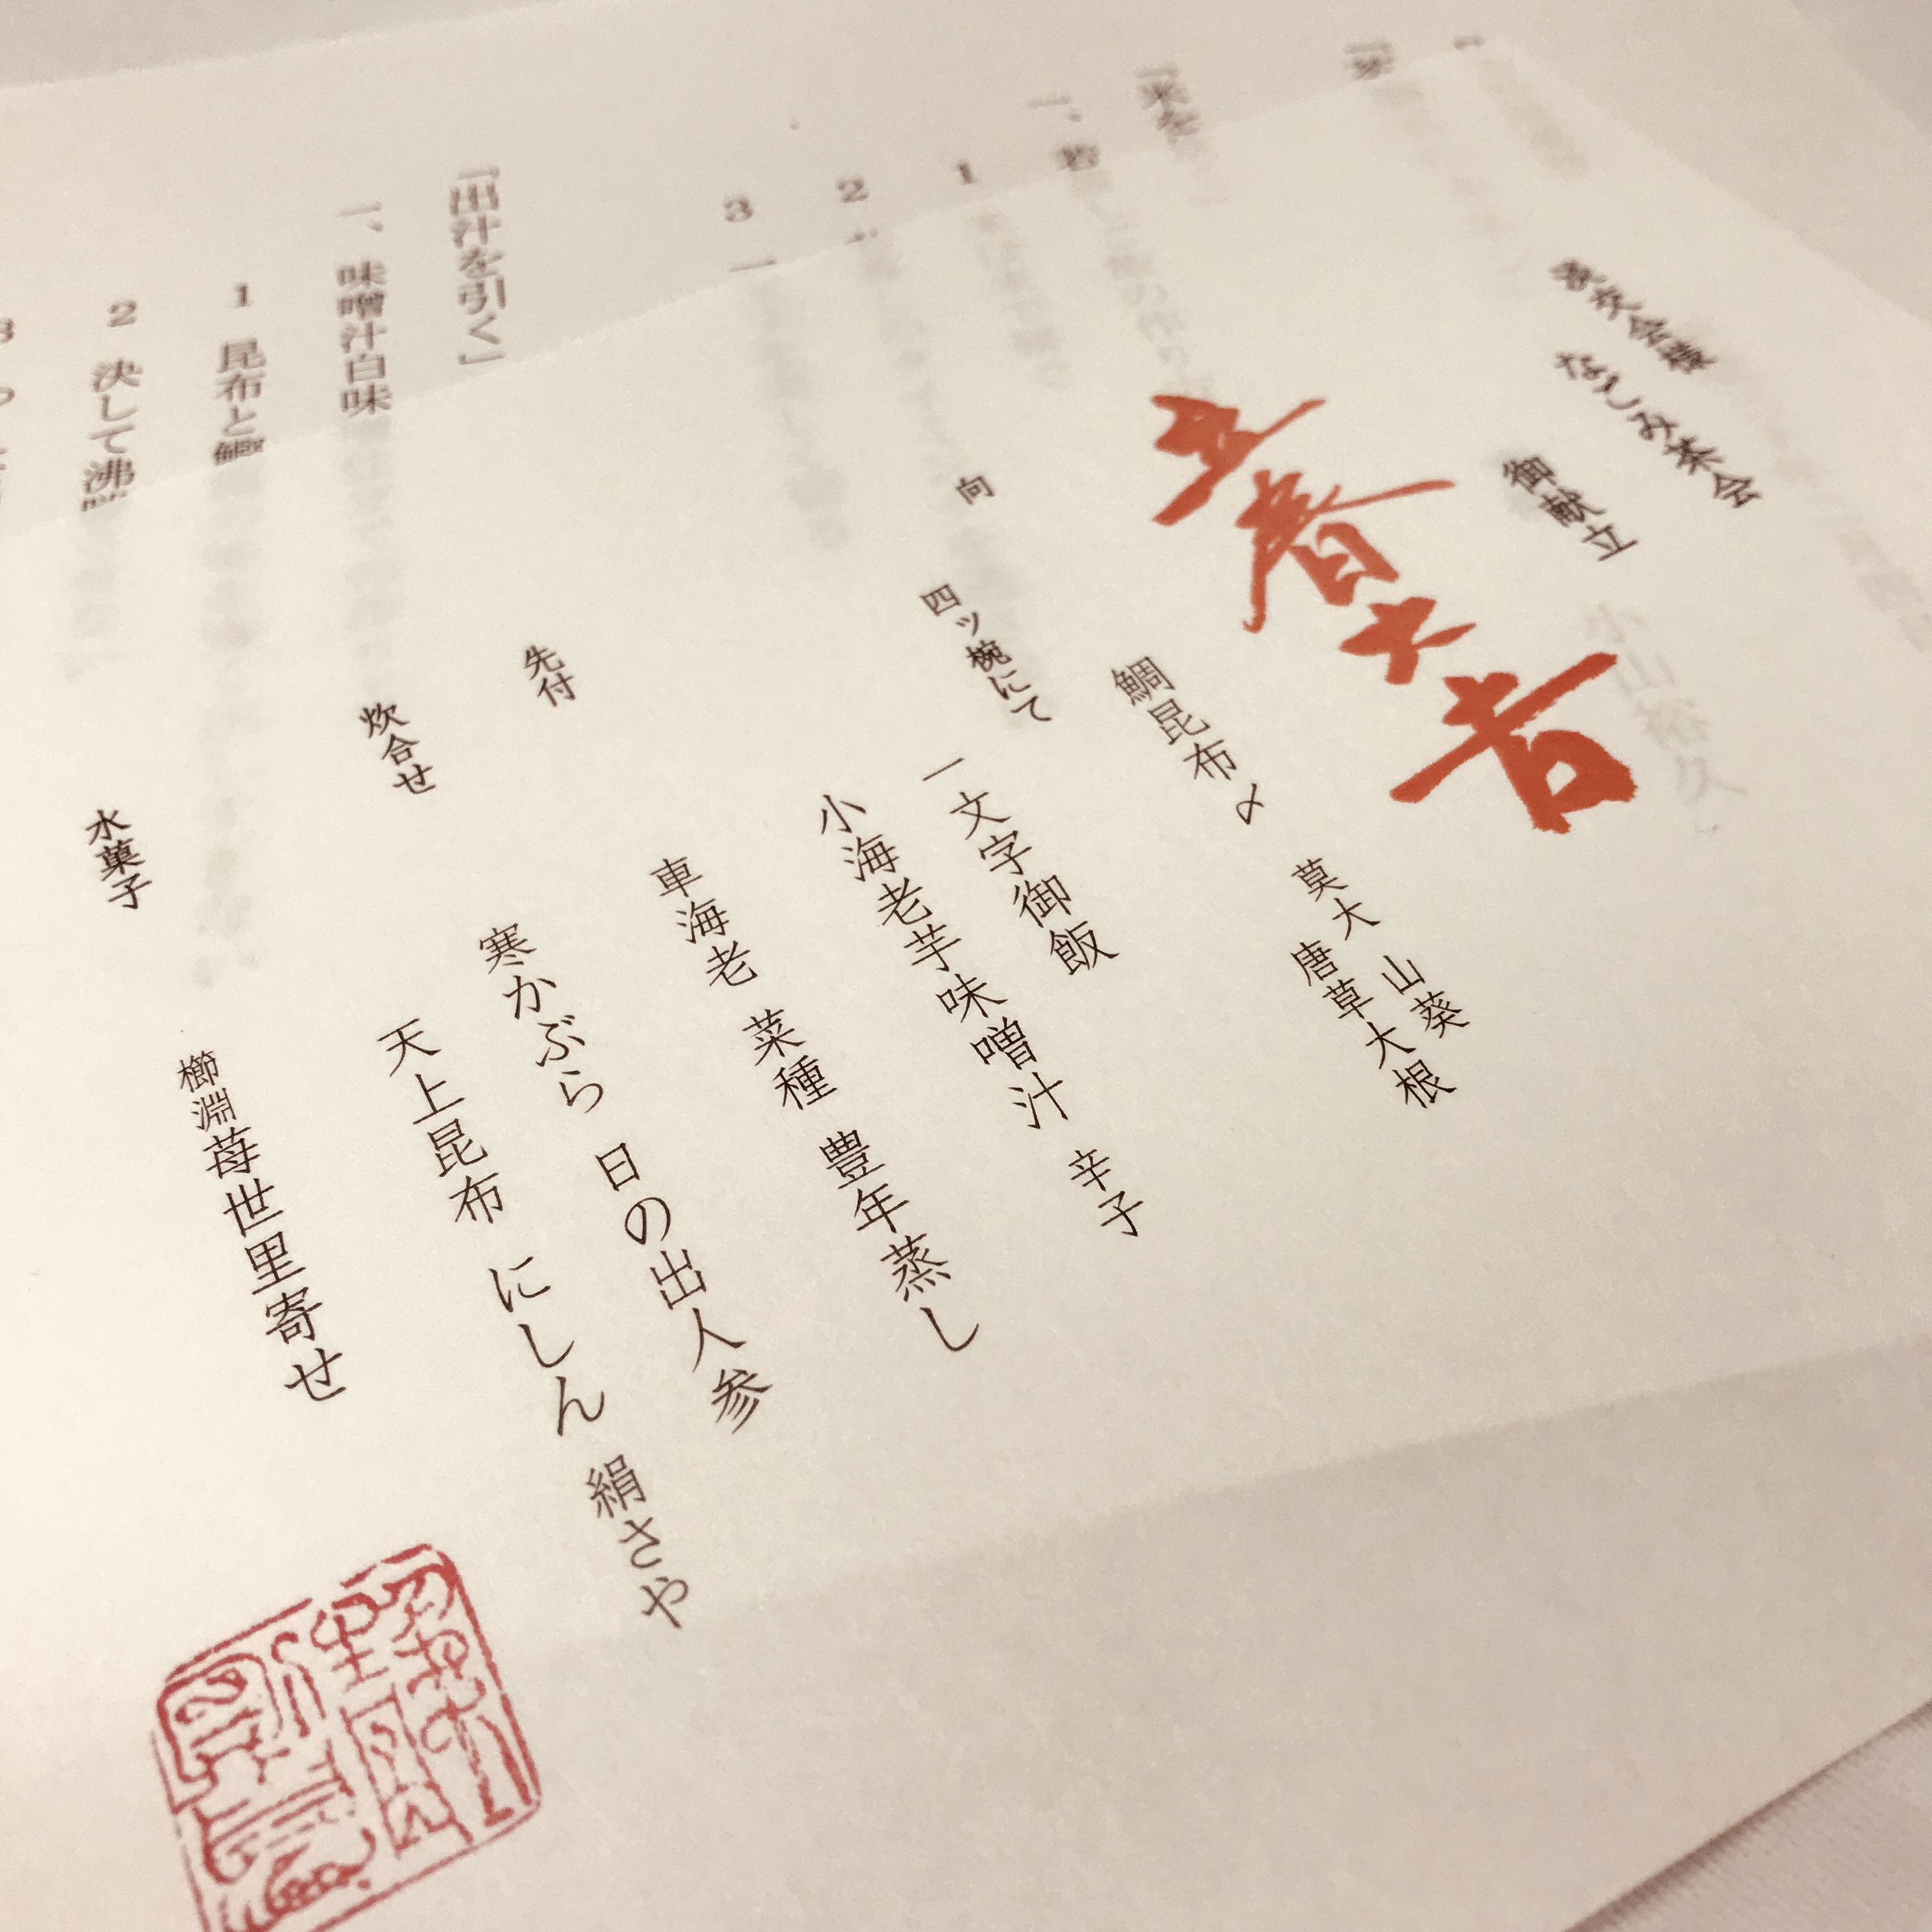 なごみ茶会
御献立
立春大吉
向
鯛昆布〆
莫大 山葵
唐草大根
四ッ椀にて
一文字御飯
小海老芋味噌汁 辛子
車海老 菜種 豊年蒸し
先付
寒かぶら 日の出人参
炊合せ
天上昆布 にしん 絹さや
水菓子
櫛淵苺世里寄せ
小山裕久
1
2
3
「出汁を引く」
一、味噌汁白味
1 昆布と鰹
2 決して沸